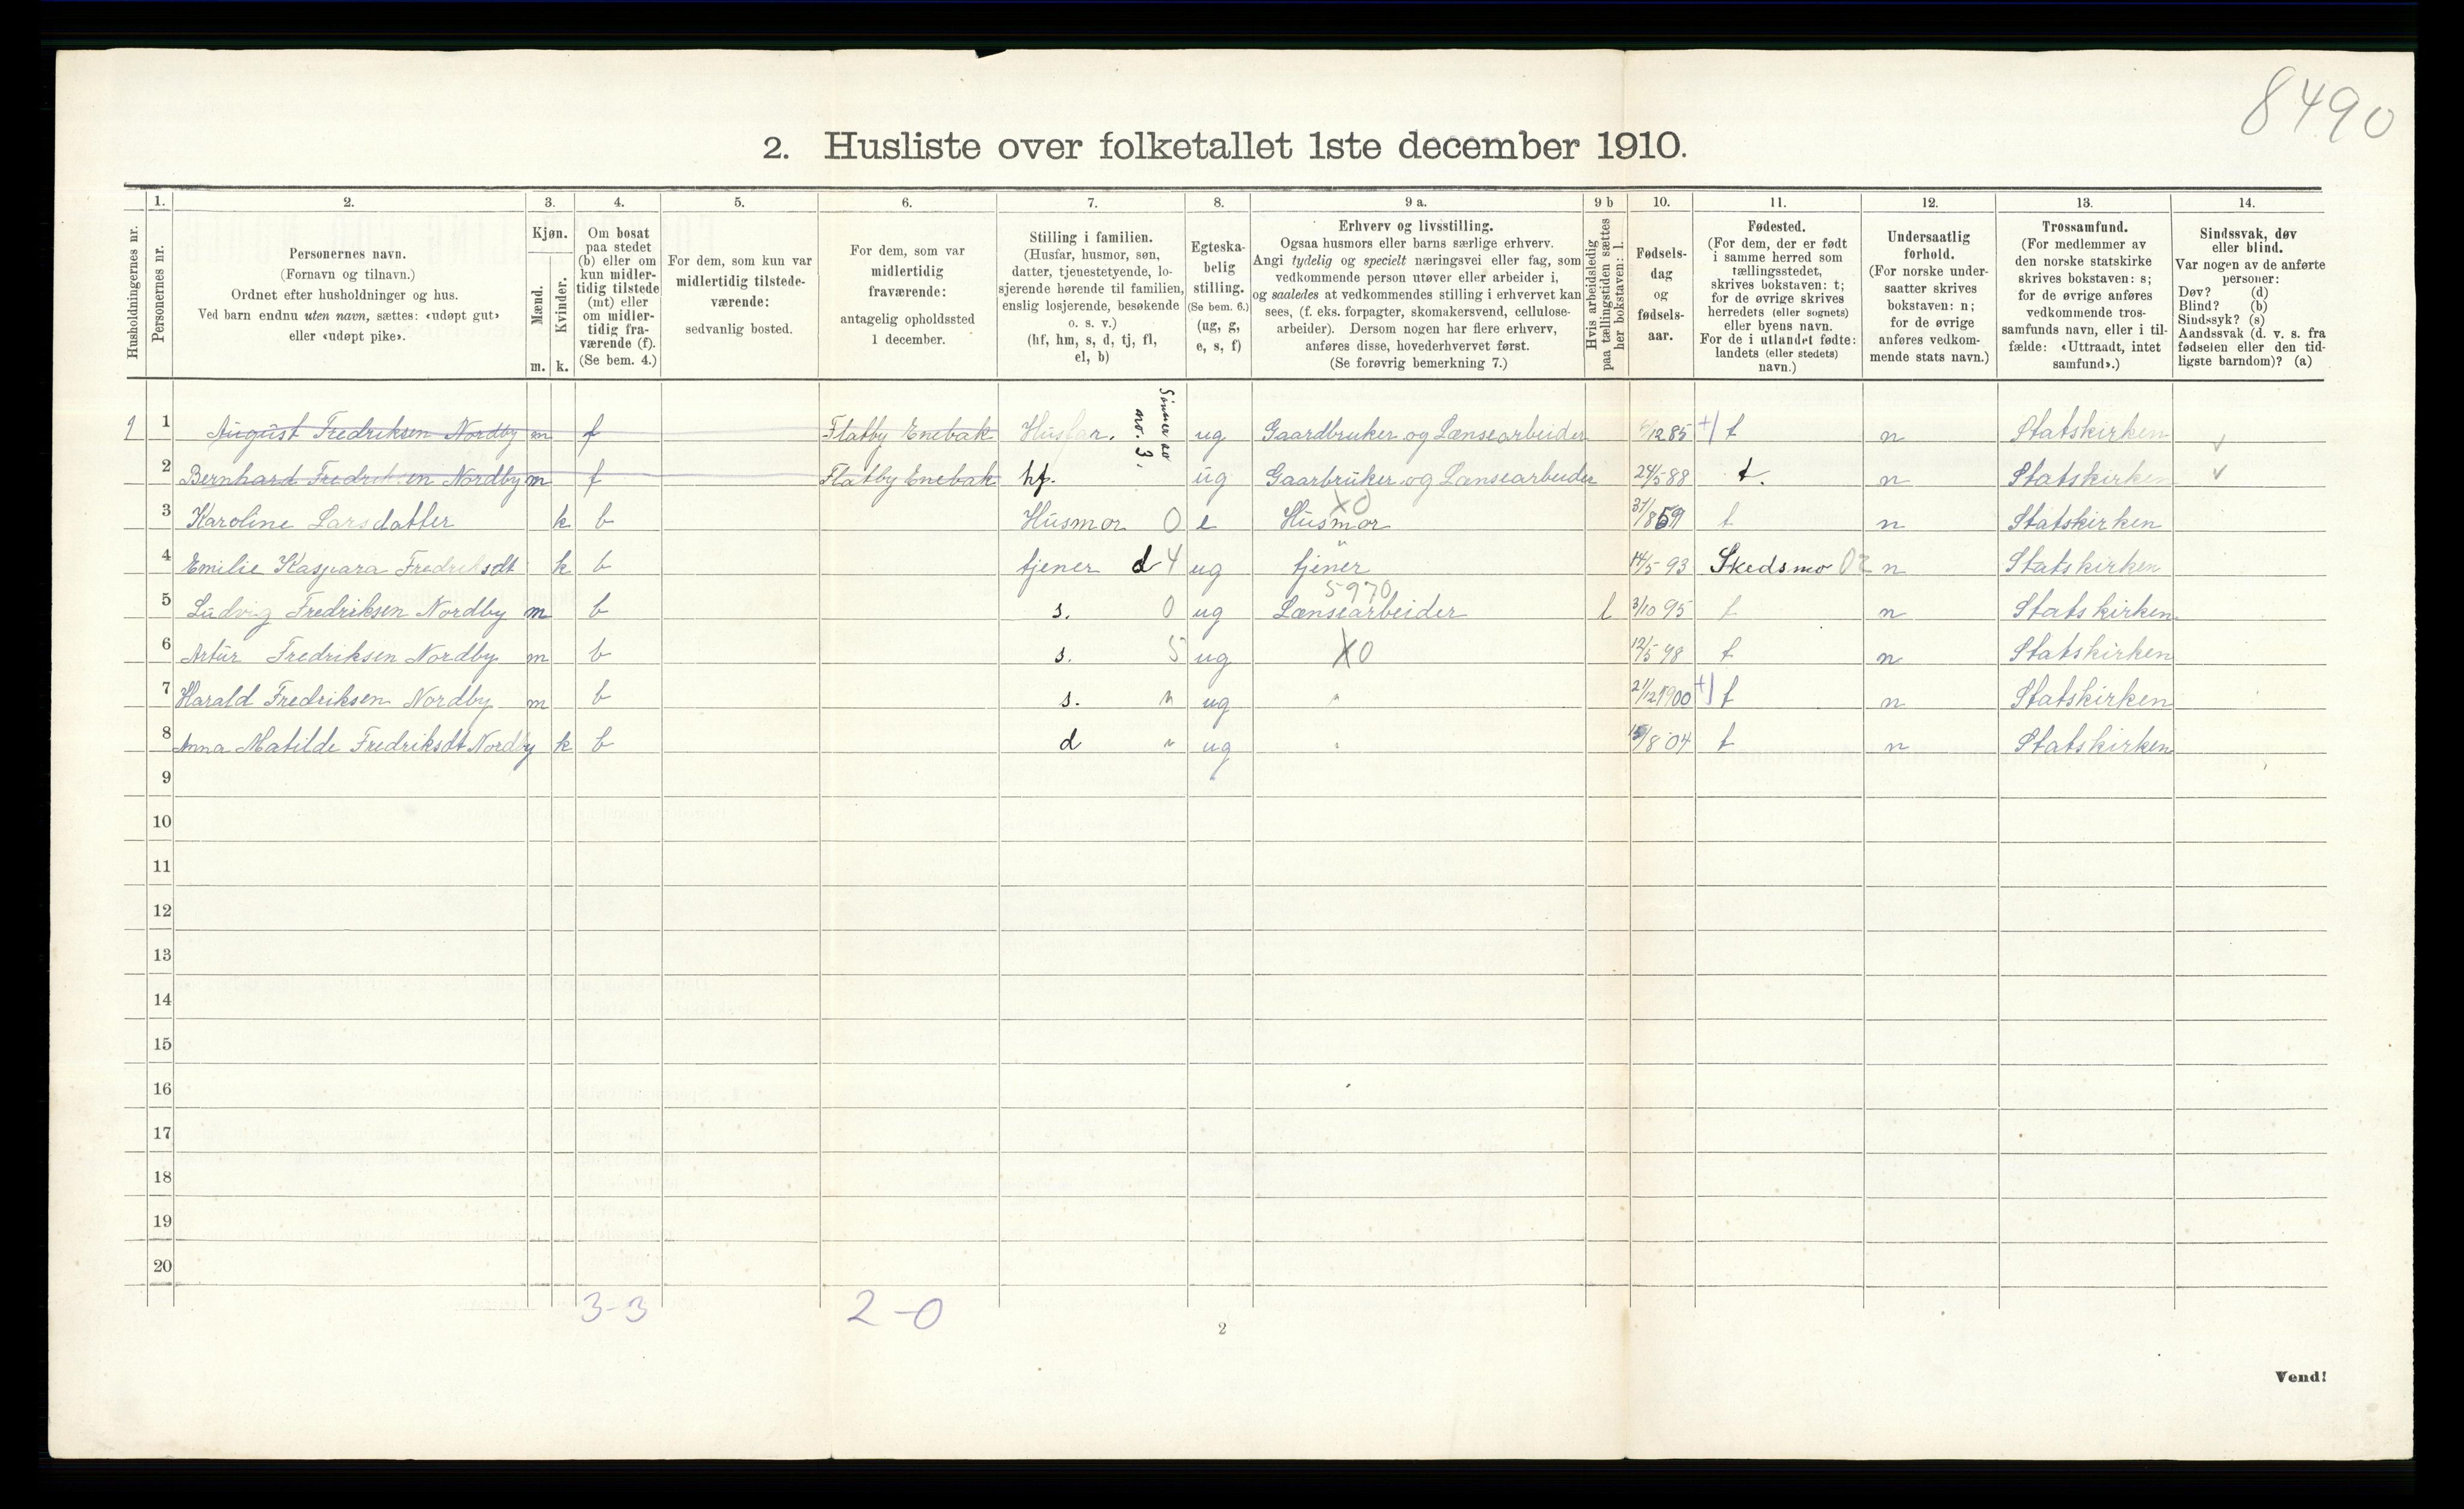 8490
2. Husliste over folketallet 1ste december 1910.
Husholdningernes nr.
1.
Personernes nr.
2.
Personernes navn.
(Fornavn og tilnavn.)
Ordnet efter husholdninger og hus.
Ved barn endnu uten navn, sættes: «udøpt gut»
eller «udøpt pike».
3.
Kjøn.
Mænd.
Kvinder.
m. k.
4.
Om bosat
paa stedet
(b) eller om
kun midler-
tidig tilstede
(mt) eller
om midler-
tidig fra-
værende (f).
(Se bem. 4.)
5.
For dem, som kun var
midlertidig tilstede-
værende:
sedvanlig bosted.
6.
For dem, som var
midlertidig
fraværende:
antagelig opholdssted
1 december.
7.
Stilling i familien.
(Husfar, husmor, søn,
datter, tjenestetyende, lo-
sjerende hørende til familien,
enslig losjerende, besøkende
o. s. v.)
(hf, hm, s, d, tj, fl,
el, b)
8.
Egteska-
belig
stilling.
(Se bem. 6.)
(ug, g,
e, s, f)
9 a.
Erhverv og livsstilling.
Ogsaa husmors eller barns særlige erhverv.
Angi tydelig og specielt næringsvei eller fag, som
vedkommende person utøver eller arbeider i,
og saaledes at vedkommendes stilling i erhvervet kan
sees, (f. eks. forpagter, skomakersvend, cellulose-
arbeider). Dersom nogen har flere erhverv,
anføres disse, hovederhvervet først.
(Se forøvrig bemerkning 7.)
9 b
Hvis arbeidsledig
paa tællingstiden sættes
her bokstaven: l.
10.
Fødsels-
dag
og
fødsels-
aar.
11.
Fødested.
(For dem, der er født
i samme herred som
tællingsstedet,
skrives bokstaven: t;
for de øvrige skrives
herredets (eller sognets)
eller byens navn.
For de i utlandet fødte:
landets (eller stedets)
navn.)
12.
Undersaatlig
forhold.
(For norske under-
saatter skrives
bokstaven: n;
for de øvrige
anføres vedkom-
mende stats navn.)
13.
Trossamfund.
(For medlemmer av
den norske statskirke
skrives bokstaven: s;
for de øvrige anføres
vedkommende tros-
samfunds navn, eller i til-
fælde: «Uttraadt, intet
samfund».)
14.
Sindssvak, døv
eller blind.
Var nogen av de anførte
personer:
Døv? (d)
Blind? (b)
Sindssyk? (s)
Aandssvak (d. v. s. fra
fødselen eller den tid-
ligste barndom)? (a)
Sønner av
no. 3.
1 1 August Fredriksen Nordby m f Flatby Enebak Husfar. ug Gaardbruker og Lænsearbeider 6/12 85 +1 t n Statskirken
2 Bernhard Fredriksen Nordby m f Flatby Enebak hf. ug Gaarbruker og Lænsearbeider 24/5 88 t. n Statskirken
X0
3 Karoline Larsdatter k b Husmor 0 e Husmor 31/8 59 t n Statskirken
"
4 Emilie Kaspara Fredriksdt k b tjener d 4 ug tjener 14/5 93 Skedsmo 02 n Statskirken
5970
5 Ludvig Fredriksen Nordby m b s. 0 ug Lænsearbeider l 3/10 95 t n Statskirken
6 Artur Fredriksen Nordby m b s. 5 ug X0 12/5 98 t n Statskirken
7 Harald Fredriksen Nordby m b s. " ug " 21/12 1900 +1 t n Statskirken
8 Anna Matilde Fredriksdt Nordby k b d " ug " 15/8 04 t n Statskirken
9
10
11
12
13
14
15
16
17
18
19
20
3-3 2-0
2
Vend!